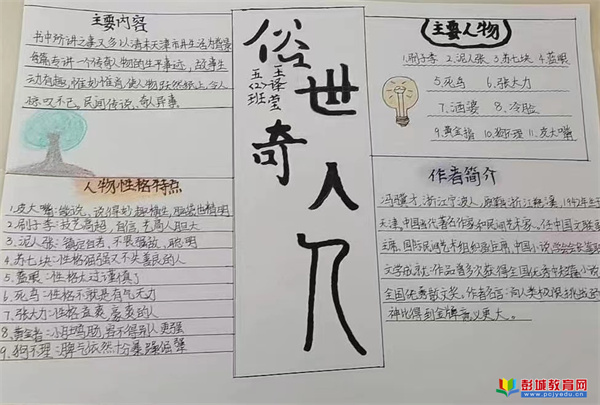 主要内容
书中所讲之事又多以清末天津市井生活为背景
每篇专讲一个传奇人物的生平事迹，故事生
动有趣，惟妙惟肖，使人物跃然纸上，令人
惊叹不已，民间传说、奇人异事
人物性格特点
1.皮大嘴：能说，说得妙趣横生，脑袋也精明
2.刷子李：技艺高超，自信，艺高人胆大
3.泥人张：镇定自若，不畏强敌，聪明
4.苏七块：性格倔强又不失善良的人
5.蓝眼：性格太过谨慎了
6.死鸟：性格不就是有气无力
7.张大力：性格直爽，豪爽的人
8.黄金指：小肚鸡肠，容不得别人更强
9.狗不理：脾气依然十分暴强倔犟
俗世奇人
五(2)班
主要人物
1.刷子李 2.泥人张 3.苏七块 4.蓝眼
5.死鸟 6.张大力
7.酒婆 8.冷脸
9.黄金指 10.狗不理 11.皮大嘴
作者简介
冯骥才，浙江宁波人，祖籍浙江慈溪，1942年生于
天津，中国当代著名作家和民间艺术家。任中国文联
主席，国际民间艺术组织副主席，中国小说学会会
文学成就：作品曾多次获得全国优秀中短篇小说
全国优秀散文奖。作者名言：向人类极限挑战
神比得到金牌意义更大。
彭城教育网
www.pcjyedu.cn